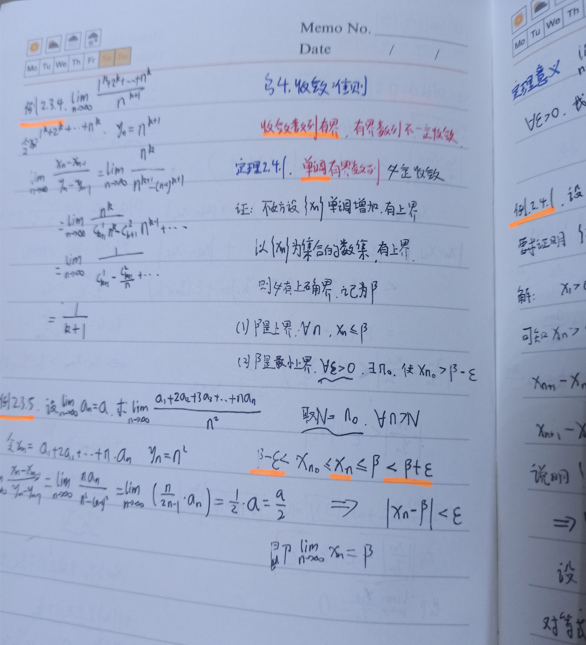 Memo No.
Date / /
Mo Tu We Th Fr
例2.3.4. lim n→∞ (1^k+2^k+…+n^k)/n^(k+1)
1^k+2^k+…+n^k. yn=n^(k+1)
lim n→∞ (xn-xn-1)/(yn-yn-1)=lim n→∞ n^k/(n^(k+1)-(n-1)^(k+1))
=lim n→∞
=lim n→∞
=1/(k+1)
例2.3.5. 设 lim n→∞ an=a. 求 lim n→∞ (a1+2a2+3a3+…+nan)/n²
令xn=a1+2a2+…+n·an yn=n²
(xn-xn-1)/(yn-yn-1)=lim n→∞ nan/(n²-(n-1)²)=lim n→∞ (n/(2n-1)·an)=1/2·a=a/2
§4. 收敛准则
收敛数列有界, 有界数列不一定收敛
定理2.4.1. 单调有界数列必定收敛
证: 不妨设{xn}单调增加, 有上界
以{xn}为集合的数集, 有上界
则必有上确界, 记为β
(1) β是上界, ∀n, xn≤β
(2) β是最小上界, ∀ε>0, ∃n0, 使xn0>β-ε
取N=n0, ∀n>N
β-ε<xn0≤xn≤β<β+ε
⟹ |xn-β|<ε
即 lim n→∞ xn=β
Mo Tu We Th
定理意义
∀ε>0.
例2.4.1. 设
要证明
解:
可知xn>
xn+1-xn
xn+1-x
说明
⟹
设